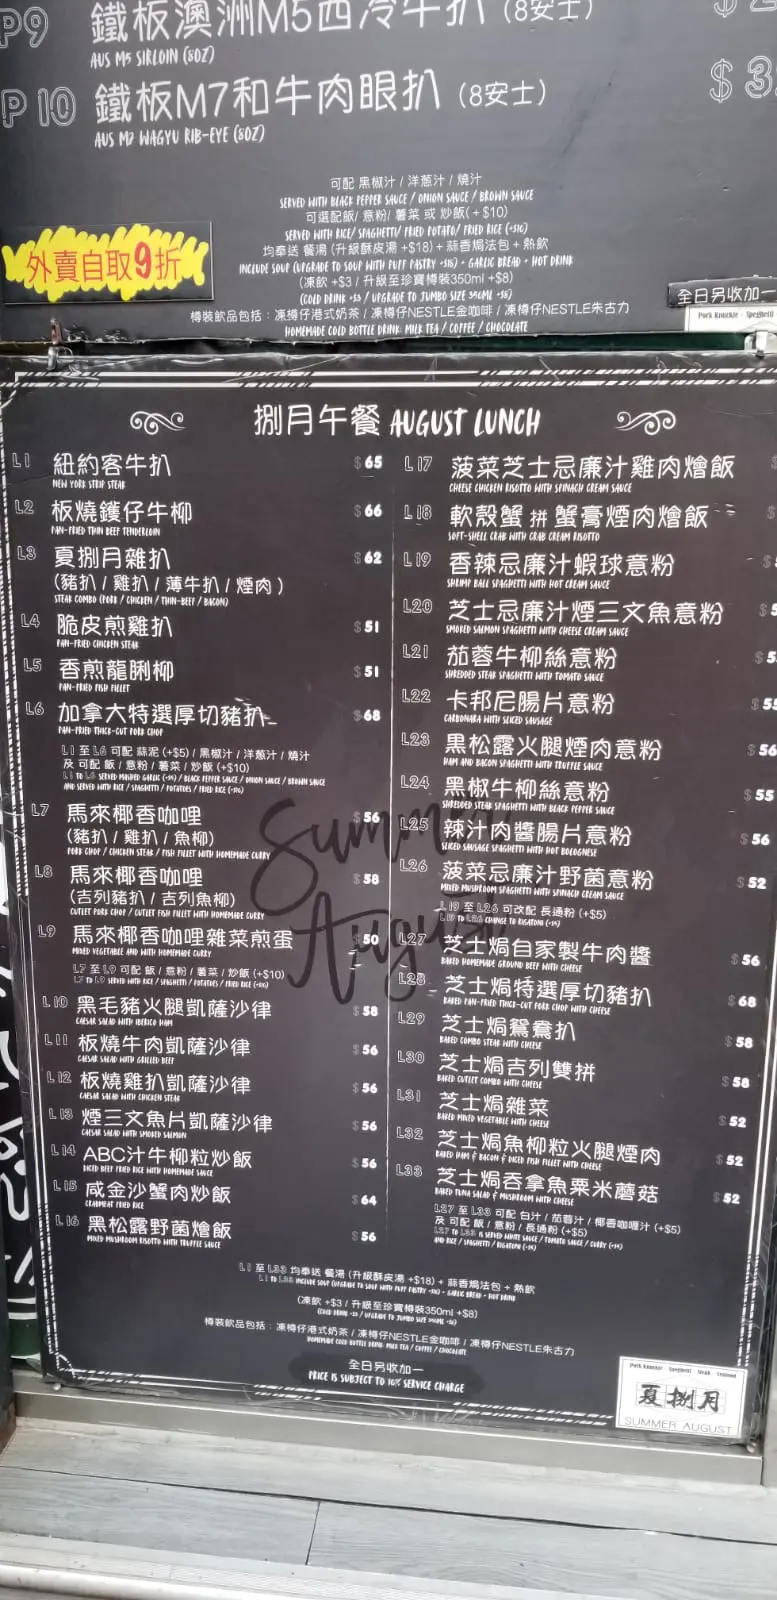 P9 鐵板澳洲M5西冷牛扒 (8安士)
AUS M5 SIRLOIN (8OZ)
P10 鐵板M7和牛肉眼扒 (8安士) $ 3
AUS M7 WAGYU RIB-EYE (8OZ)
可配 黑椒汁 / 洋葱汁 / 燒汁
SERVED WITH BLACK PEPPER SAUCE / ONION SAUCE / BROWN SAUCE
可選配飯/ 意粉/ 薯菜 或 炒飯(+ $10)
SERVED WITH RICE/ SPAGHETTI/ FRIED POTATO/ FRIED RICE (+$10)
均奉送 餐湯 (升級酥皮湯 +$18) + 蒜香焗法包 + 熱飲
INCLUDE SOUP (UPGRADE TO SOUP WITH PUFF PASTRY +$18) + GARLIC BREAD + HOT DRINK
(凍飲 +$3 / 升級至珍寶樽裝350ml +$8)
(COLD DRINK +$3 / UPGRADE TO JUMBO SIZE 350ML +$8)
樽裝飲品包括 : 凍樽仔港式奶茶 / 凍樽仔NESTLE金咖啡 / 凍樽仔NESTLE朱古力
HOMEMADE COLD BOTTLE DRINK: MILK TEA / COFFEE / CHOCOLATE
外賣自取9折
全日另收加一
Pork Knuckle · Spaghetti
捌月午餐 AUGUST LUNCH
L1 紐約客牛扒 $65
NEW YORK STRIP STEAK
L2 板燒鑊仔牛柳 $66
PAN-FRIED THIN BEEF TENDERLOIN
L3 夏捌月雜扒 $62
(豬扒 / 雞扒 / 薄牛扒 / 煙肉 )
STEAK COMBO (PORK / CHICKEN / THIN-BEEF / BACON)
L4 脆皮煎雞扒 $51
PAN-FRIED CHICKEN STEAK
L5 香煎龍脷柳 $51
PAN-FRIED FISH FILLET
L6 加拿大特選厚切豬扒 $68
PAN-FRIED THICK-CUT PORK CHOP
L1 至 L6 可配 蒜泥 (+$5) / 黑椒汁 / 洋葱汁 / 燒汁
及 可配 飯 / 意粉 / 薯菜 / 炒飯 (+$10)
L1 TO L6 SERVED MASHED GARLIC (+$5) / BLACK PEPPER SAUCE / ONION SAUCE / BROWN SAUCE
AND SERVED WITH RICE / SPAGHETTI / POTATOES / FRIED RICE (+$10)
L7 馬來椰香咖哩 $56
(豬扒 / 雞扒 / 魚柳)
PORK CHOP / CHICKEN STEAK / FISH FILLET WITH HOMEMADE CURRY
L8 馬來椰香咖哩 $58
(吉列豬扒 / 吉列魚柳)
CUTLET PORK CHOP / CUTLET FISH FILLET WITH HOMEMADE CURRY
L9 馬來椰香咖哩雜菜煎蛋 $50
MIXED VEGETABLE AND WITH HOMEMADE CURRY
L7 至 L9 可配 飯 / 意粉 / 薯菜 / 炒飯 (+$10)
L7 TO L9 SERVED WITH RICE / SPAGHETTI / POTATOES / FRIED RICE (+$10)
L10 黑毛豬火腿凱薩沙律 $58
CAESAR SALAD WITH IBERICO HAM
L11 板燒牛肉凱薩沙律 $56
CAESAR SALAD WITH GRILLED BEEF
L12 板燒雞扒凱薩沙律 $56
CAESAR SALAD WITH CHICKEN STEAK
L13 煙三文魚片凱薩沙律 $56
CAESAR SALAD WITH SMOKED SALMON
L14 ABC汁牛柳粒炒飯 $56
DICED BEEF FRIED RICE WITH HOMEMADE SAUCE
L15 咸金沙蟹肉炒飯 $64
CRABMEAT FRIED RICE
L16 黑松露野菌燴飯 $56
MIXED MUSHROOM RISOTTO WITH TRUFFLE SAUCE
L17 菠菜芝士忌廉汁雞肉燴飯 $
CHEESE CHICKEN RISOTTO WITH SPINACH CREAM SAUCE
L18 軟殼蟹 拼 蟹膏煙肉燴飯 $
SOFT-SHELL CRAB WITH CRAB CREAM RISOTTO
L19 香辣忌廉汁蝦球意粉 $
SHRIMP BALL SPAGHETTI WITH HOT CREAM SAUCE
L20 芝士忌廉汁煙三文魚意粉 $5
SMOKED SALMON SPAGHETTI WITH CHEESE CREAM SAUCE
L21 茄蓉牛柳絲意粉 $5
SHREDDED STEAK SPAGHETTI WITH TOMATO SAUCE
L22 卡邦尼腸片意粉 $55
CARBONARA WITH SLICED SAUSAGE
L23 黑松露火腿煙肉意粉 $56
HAM AND BACON SPAGHETTI WITH TRUFFLE SAUCE
L24 黑椒牛柳絲意粉 $55
SHREDDED STEAK SPAGHETTI WITH BLACK PEPPER SAUCE
L25 辣汁肉醬腸片意粉 $56
SLICED SAUSAGE SPAGHETTI WITH HOT BOLOGNESE
L26 菠菜忌廉汁野菌意粉 $52
MIXED MUSHROOM SPAGHETTI WITH SPINACH CREAM SAUCE
L19 至 L26 可改配 長通粉 (+$5)
L19 TO L26 CHANGE TO RIGATONI (+$5)
L27 芝士焗自家製牛肉醬 $56
BAKED HOMEMADE GROUND BEEF WITH CHEESE
L28 芝士焗特選厚切豬扒 $68
BAKED PAN-FRIED THICK-CUT PORK CHOP WITH CHEESE
L29 芝士焗鴛鴦扒 $58
BAKED COMBO STEAK WITH CHEESE
L30 芝士焗吉列雙拼 $58
BAKED CUTLET COMBO WITH CHEESE
L31 芝士焗雜菜 $52
BAKED MIXED VEGETABLE WITH CHEESE
L32 芝士焗魚柳粒火腿煙肉 $52
BAKED HAM & BACON & DICED FISH FILLET WITH CHEESE
L33 芝士焗吞拿魚粟米蘑菇 $52
BAKED TUNA SALAD & MUSHROOM WITH CHEESE
L27 至 L33 可配 白汁 / 茄蓉汁 / 椰香咖喱汁 (+$5)
及 可配 飯 / 意粉 / 長通粉 (+$5)
L27 TO L33 IS SERVED WHITE SAUCE / TOMATO SAUCE / CURRY (+$5)
AND RICE / SPAGHETTI / RIGATONI (+$5)
Summer August
L1 至 L33 均奉送 餐湯 (升級酥皮湯 +$18) + 蒜香焗法包 + 熱飲
L1 TO L33 INCLUDE SOUP (UPGRADE TO SOUP WITH PUFF PASTRY +$18) + GARLIC BREAD + HOT DRINK
(凍飲 +$3 / 升級至珍寶樽裝350ml +$8)
(COLD DRINK +$3 / UPGRADE TO JUMBO SIZE 350ML +$8)
樽裝飲品包括 : 凍樽仔港式奶茶 / 凍樽仔NESTLE金咖啡 / 凍樽仔NESTLE朱古力
HOMEMADE COLD BOTTLE DRINK: MILK TEA / COFFEE / CHOCOLATE
全日另收加一
PRICE IS SUBJECT TO 10% SERVICE CHARGE
Pork Knuckle · Spaghetti · Steak · Seafood
夏捌月
SUMMER AUGUST